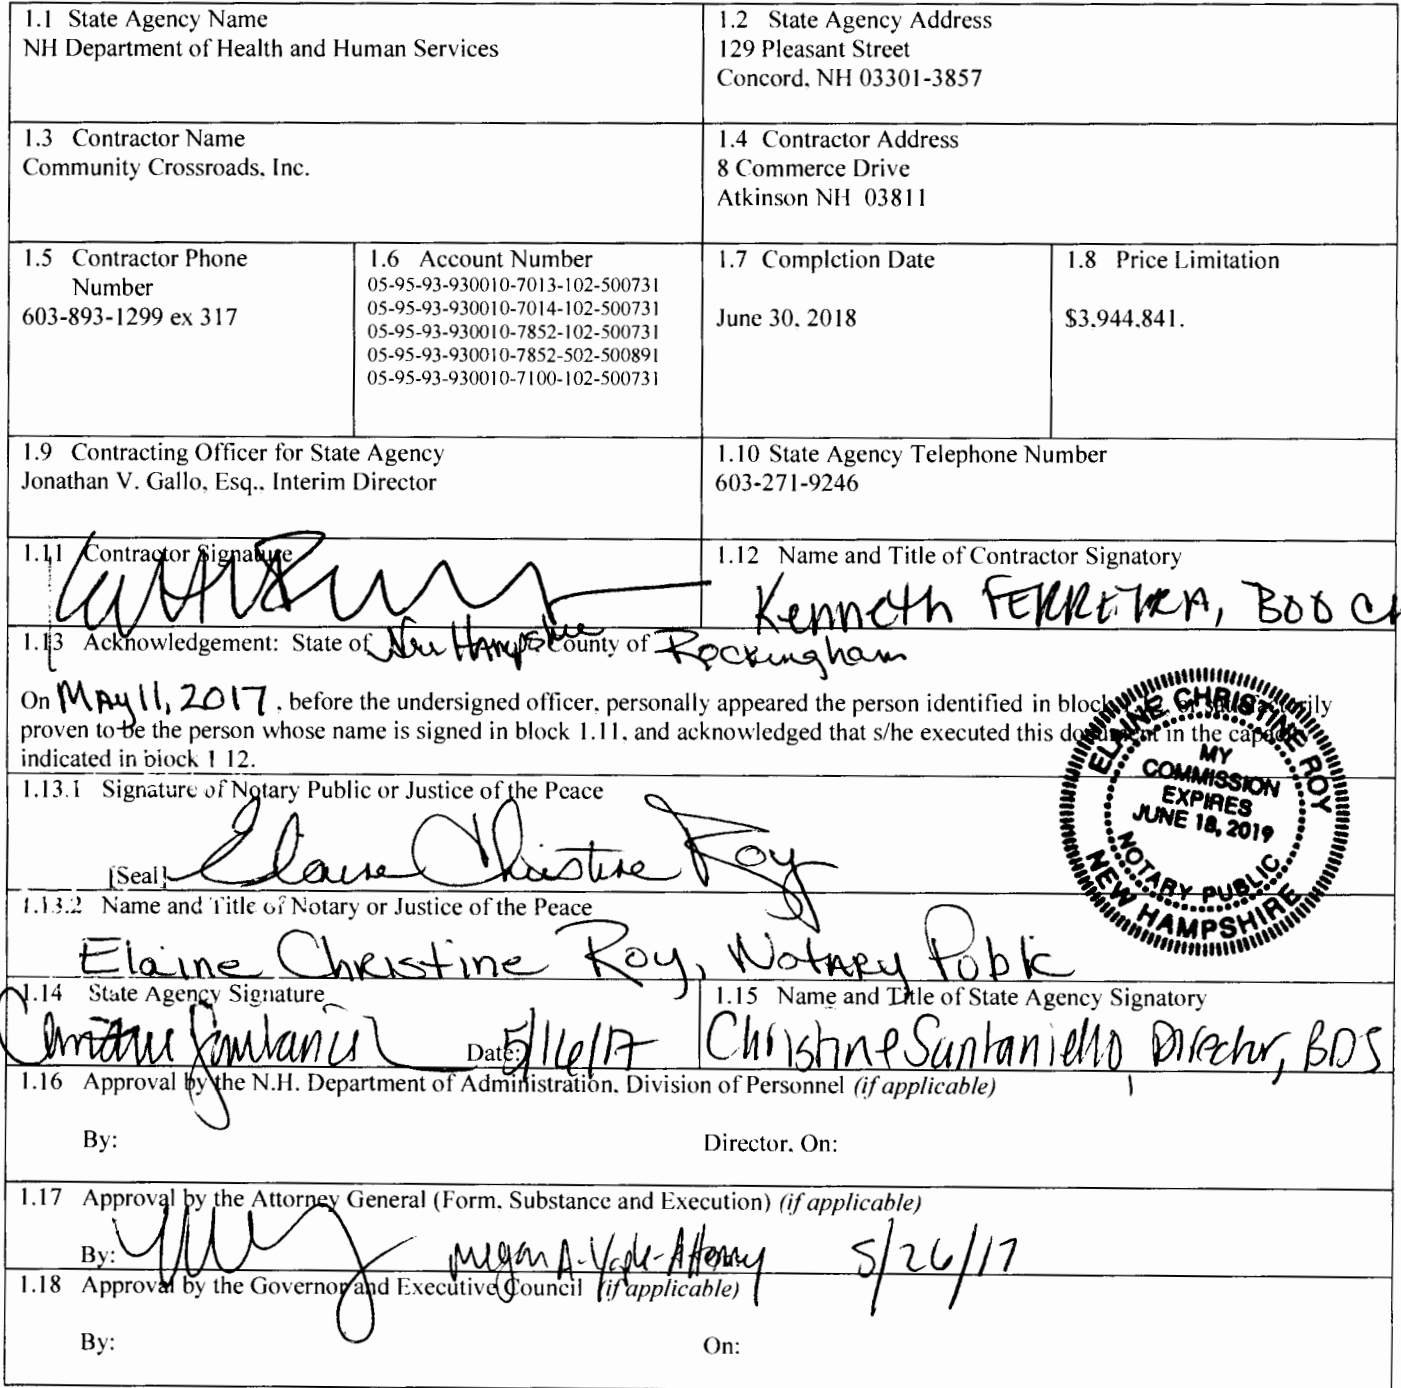 1.1 State Agency Name
NH Department of Health and Human Services
1.2 State Agency Address
129 Pleasant Street
Concord, NH 03301-3857
1.3 Contractor Name
Community Crossroads, Inc.
1.4 Contractor Address
8 Commerce Drive
Atkinson NH 03811
1.5 Contractor Phone
Number
603-893-1299 ex 317
1.6 Account Number
05-95-93-930010-7013-102-500731
05-95-93-930010-7014-102-500731
05-95-93-930010-7852-102-500731
05-95-93-930010-7852-502-500891
05-95-93-930010-7100-102-500731
1.7 Completion Date
June 30, 2018
1.8 Price Limitation
$3,944,841.
1.9 Contracting Officer for State Agency
Jonathan V. Gallo, Esq., Interim Director
1.10 State Agency Telephone Number
603-271-9246
1.11 Contractor Signature
1.12 Name and Title of Contractor Signatory
Kenneth FERREIRA, BOD
1.13 Acknowledgement: State of New Hampshire County of Rockingham
On MAy 11, 2017, before the undersigned officer, personally appeared the person identified in block
proven to be the person whose name is signed in block 1.11, and acknowledged that s/he executed this document in the
indicated in block 1 12.
ELAINE CHRISTINE ROY
MY
COMMISSION
EXPIRES
JUNE 18, 2019
NOTARY PUBLIC
NEW HAMPSHIRE
1.13.1 Signature of Notary Public or Justice of the Peace
[Seal] Elaine Christine Roy
1.13.2 Name and Title of Notary or Justice of the Peace
Elaine Christine Roy, Notary Public
1.14 State Agency Signature
Date: 5/16/17
1.15 Name and Title of State Agency Signatory
Christine Santaniello, Director, BDS
1.16 Approval by the N.H. Department of Administration, Division of Personnel (if applicable)
By:
Director, On:
1.17 Approval by the Attorney General (Form, Substance and Execution) (if applicable)
By: Megan A. Yaple - Attorney 5/26/17
1.18 Approval by the Governor and Executive Council (if applicable)
By:
On: